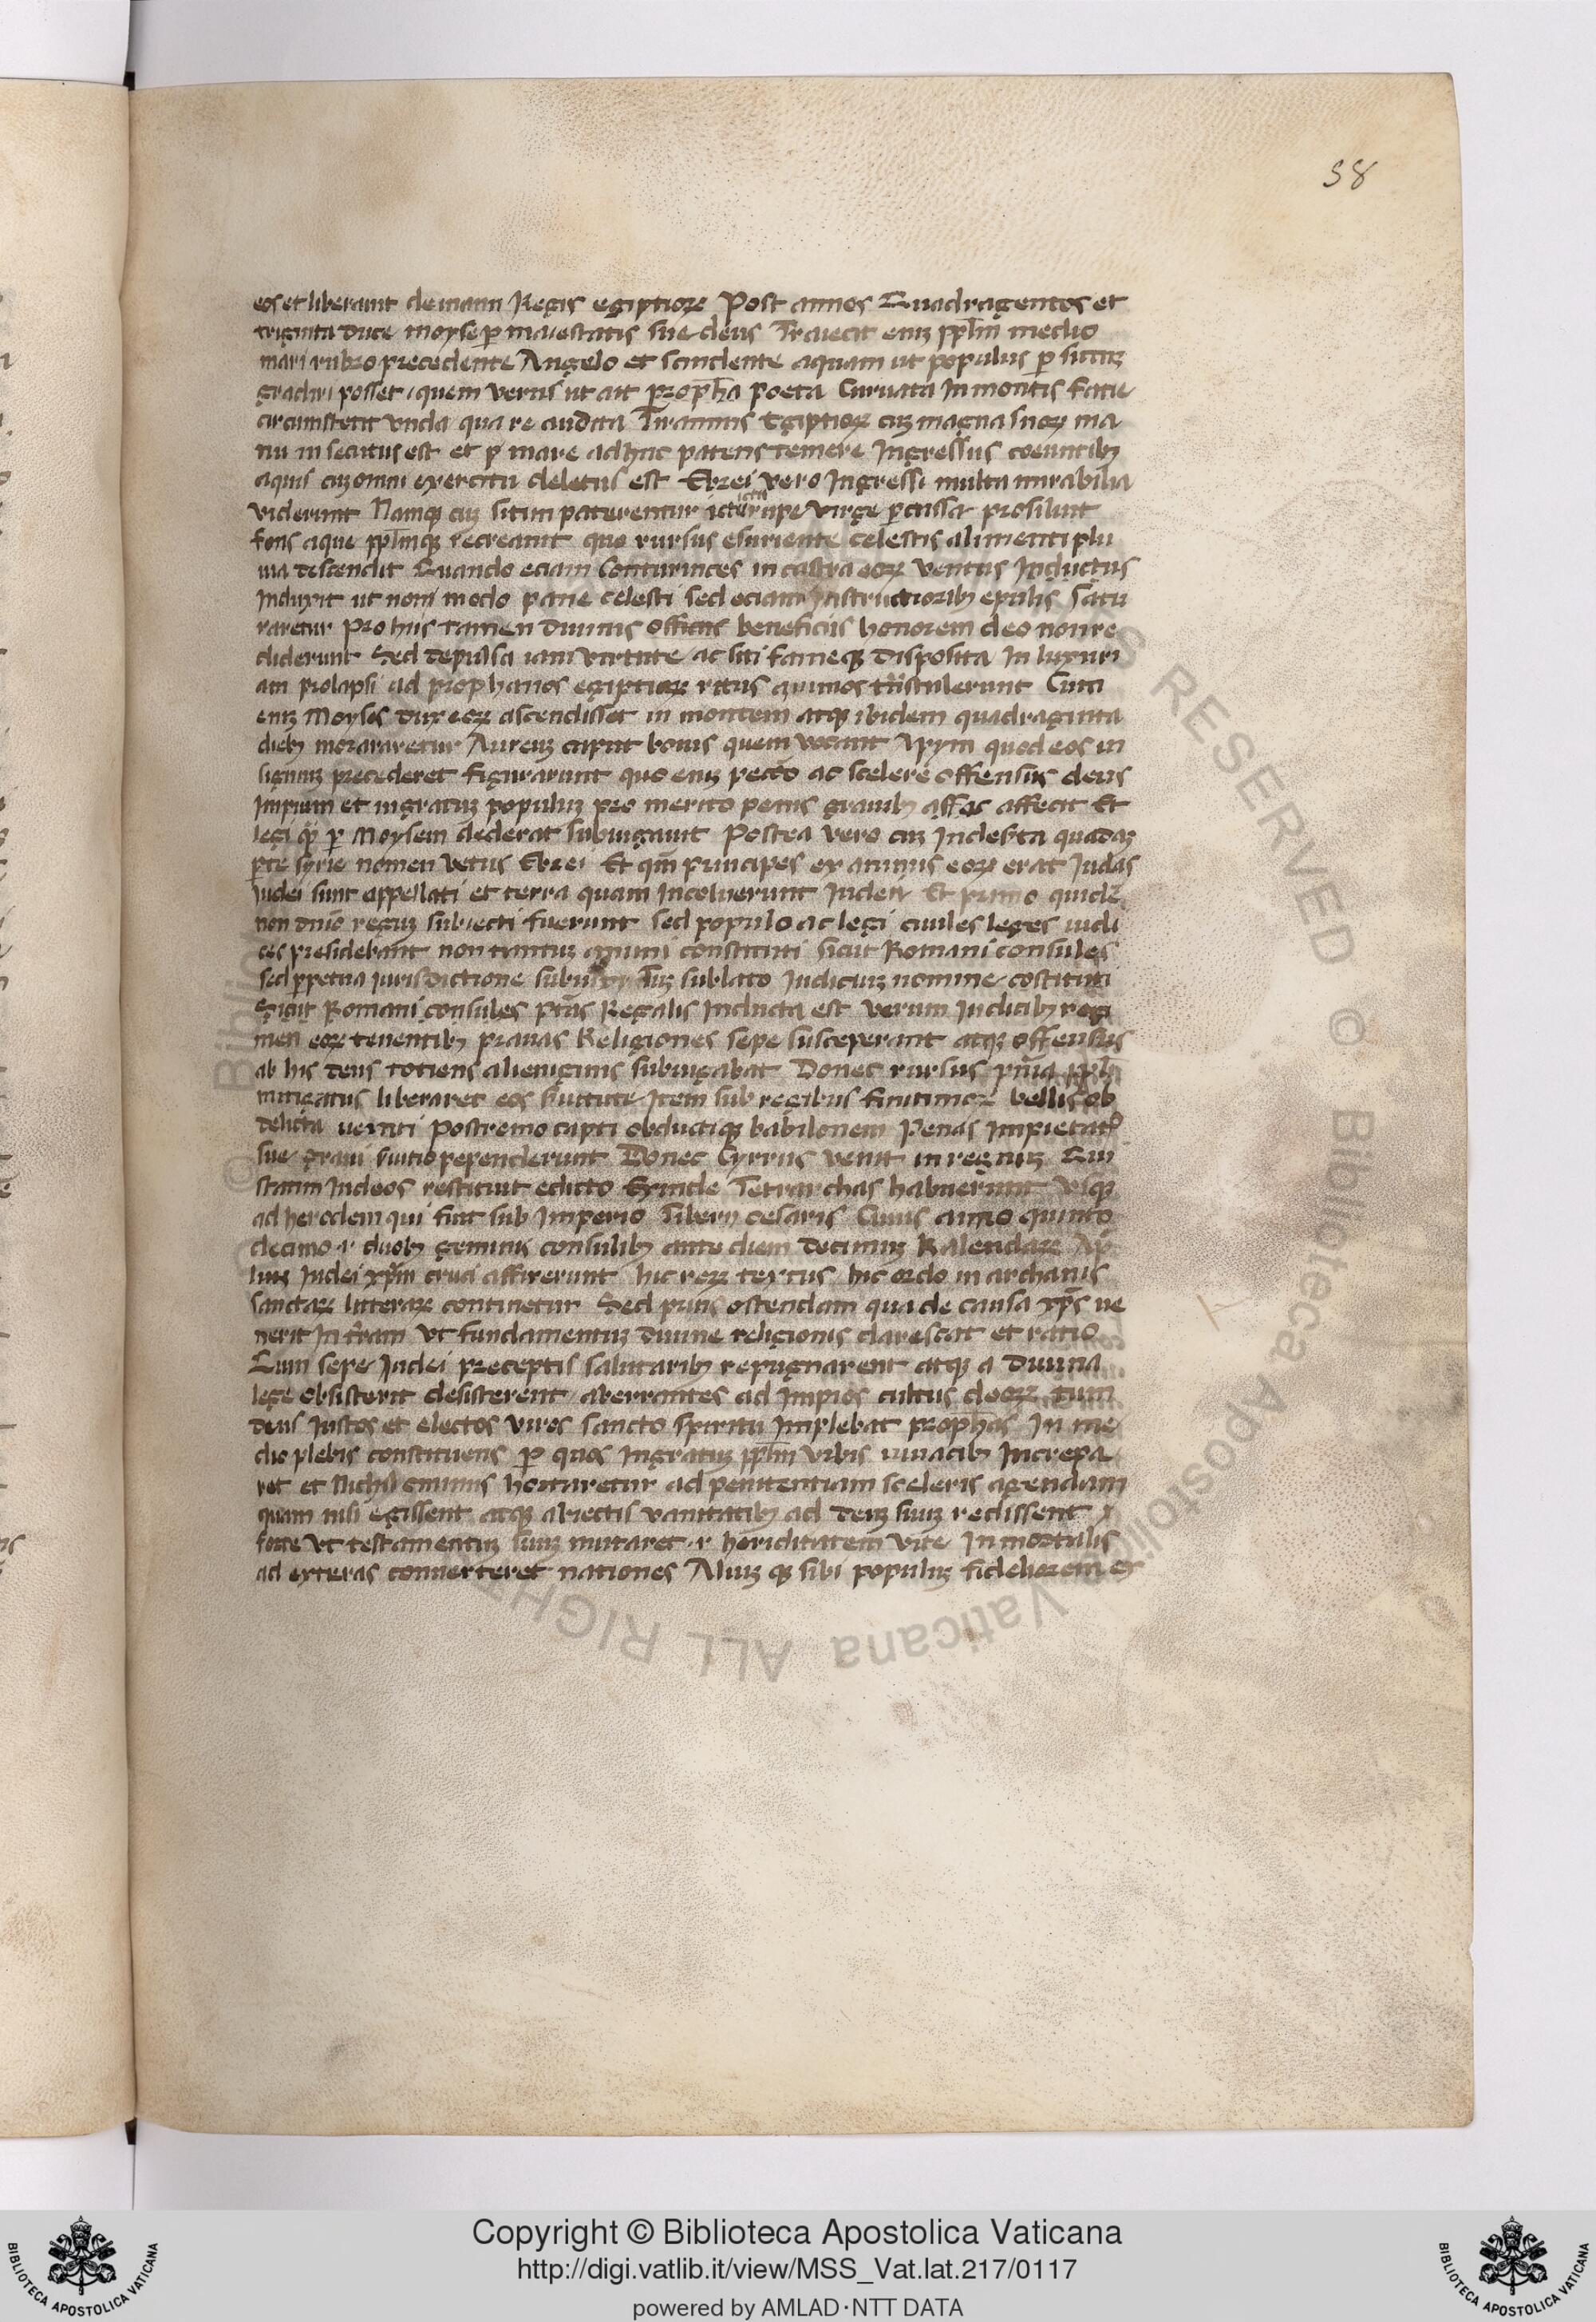 58
eos et liberauit de manu Regis egiptioꝝ Post annos Quadragentos et
triginta duce moyse ꝑ maiestatis sue deus Traiecit eniꝫ ppl̄m medio
mari rubro precedente Angelo et scindente aquam ut populus ꝑ siccuꝫ
gradiri posset quem verius ut ait propħa poeta Curuata In montis faciē
circumstetit vnda qua re audita Tirannus Egiptioꝝ cuꝫ magna suoꝝ ma
nu in secutus est et ꝑ mare ad huc patens temere Ingressus coeuntibꝫ
aquis cuꝫ omni exercitu deletus est Ebrei vero Ingressi multa mirabilia
viderunt Namqꝫ cuꝫ sitim paterentur rupe virge ꝑcussa prosiliuit
fons aque ppl̄mqꝫ recreauit quo rursus esuriente celestis alimenti plu
uia descendit Quando eciam Conturnices in castra eoꝝ ventus Inductus
Induxit ut non modo pane celesti sed eciam Instructioribꝫ epulis satu
raretur Pro hiis tamen diuinis officiis beneficiis honorem deo non re
diderunt Sed depulsa iam virtute ac siti fameqꝫ disposita In luxuri
am prolapsi ad prophanos egiptioꝝ ritus animos tn̄stulerunt Cum
eniꝫ Moyses dux eoꝝ ascendisset in montem atqꝫ ibidem quadraginta
diebꝫ morararetur Aureuꝫ caput bouis quem vocant Apym quod eos in
signuꝫ precederet figurarunt quo eniꝫ pecc̄o ac scelere offensus deus
Impium et ingratuꝫ populuꝫ pro merito penis grauibꝫ affecit Et
legi qm̄ ꝑ Moysem dederat subiugauit Postea vero cuꝫ quadaꝫ
pte syrie nomen vetus Ebrei Et qm̄ principes examinis eoꝝ erat Judas
Judei sunt appellati et terra quam Incoluerunt Judea Et primo quidē
non dnīo reguꝫ subiecti fuerunt sed populo ac legi ciuiles leges iudi
ces presidebant non tantuꝫ annui constituti sicut Romani consules
sed ꝑpetua iurisdictione Tuꝫ sublato Judicuꝫ nomine costituti
Romani consules ptās Regalis Inducta est verum Judicibꝫ regi
men eoꝝ tenentibꝫ prauas Religiones sepe susceperant atqꝫ offensus
ab his deus totiens alienigenis subiugabat Donec rursus pnīa ppli
mitigatus liberaret eos Item sub regibus finitimoꝝ bellis ob
delicta uexati Postremo capti obductiqꝫ babilonem Penas Impietatꝭ
sue graui pependerunt Donec Cyrrus venit in regnuꝫ Qui
statim Judeos restituit edicto Exinde Tetrarchas habuerunt vsqꝫ
ad herodem qui fuit sub Imperio Tiberii cesaris Cuius anno quinto
decimo duobꝫ geminis consulibꝫ ante diem decimuꝫ Kalendaꝝ Ap
liuꝫ Judei xp̄m cruci affixerunt hic reꝝ textus hic ordo in archanis
sanctaꝝ litteraꝝ continetur Sed prius ostendam qua de causa xp̄s ue
nerit In terram Vt fundamentuꝫ diuine religionis clarescat et ratio
Cum sepe Judei preceptis salutaribꝫ repugnarent atqꝫ a diuina
lege desisterent aberrantes ad Impios cultus deoꝝ tum
deus Justos et electos viros sancto spiritu Implebat prophetas In me
dio plebis constituens ꝑ quos Ingratuꝫ ppl̄m vbis Increpa
ret et hortaretur ad penitentiam sceleris agendam
quam nisi egissent atqꝫ abiectis vanitatibꝫ ad deuꝫ suuꝫ redissent
fore vt testamentuꝫ suuꝫ mutaret hereditatem vite In mortalis
ad exteras conuerteret nationes Aliuꝫqꝫ sibi populuꝫ fideliorem ex
Copyright © Biblioteca Apostolica Vaticana
http://digi.vatlib.it/view/MSS_Vat.lat.217/0117
powered by AMLAD·NTT DATA
BIBLIOTECA APOSTOLICA VATICANA
BIBLIOTECA APOSTOLICA VATICANA
© Biblioteca Apostolica Vaticana ALL RIGHTS RESERVED